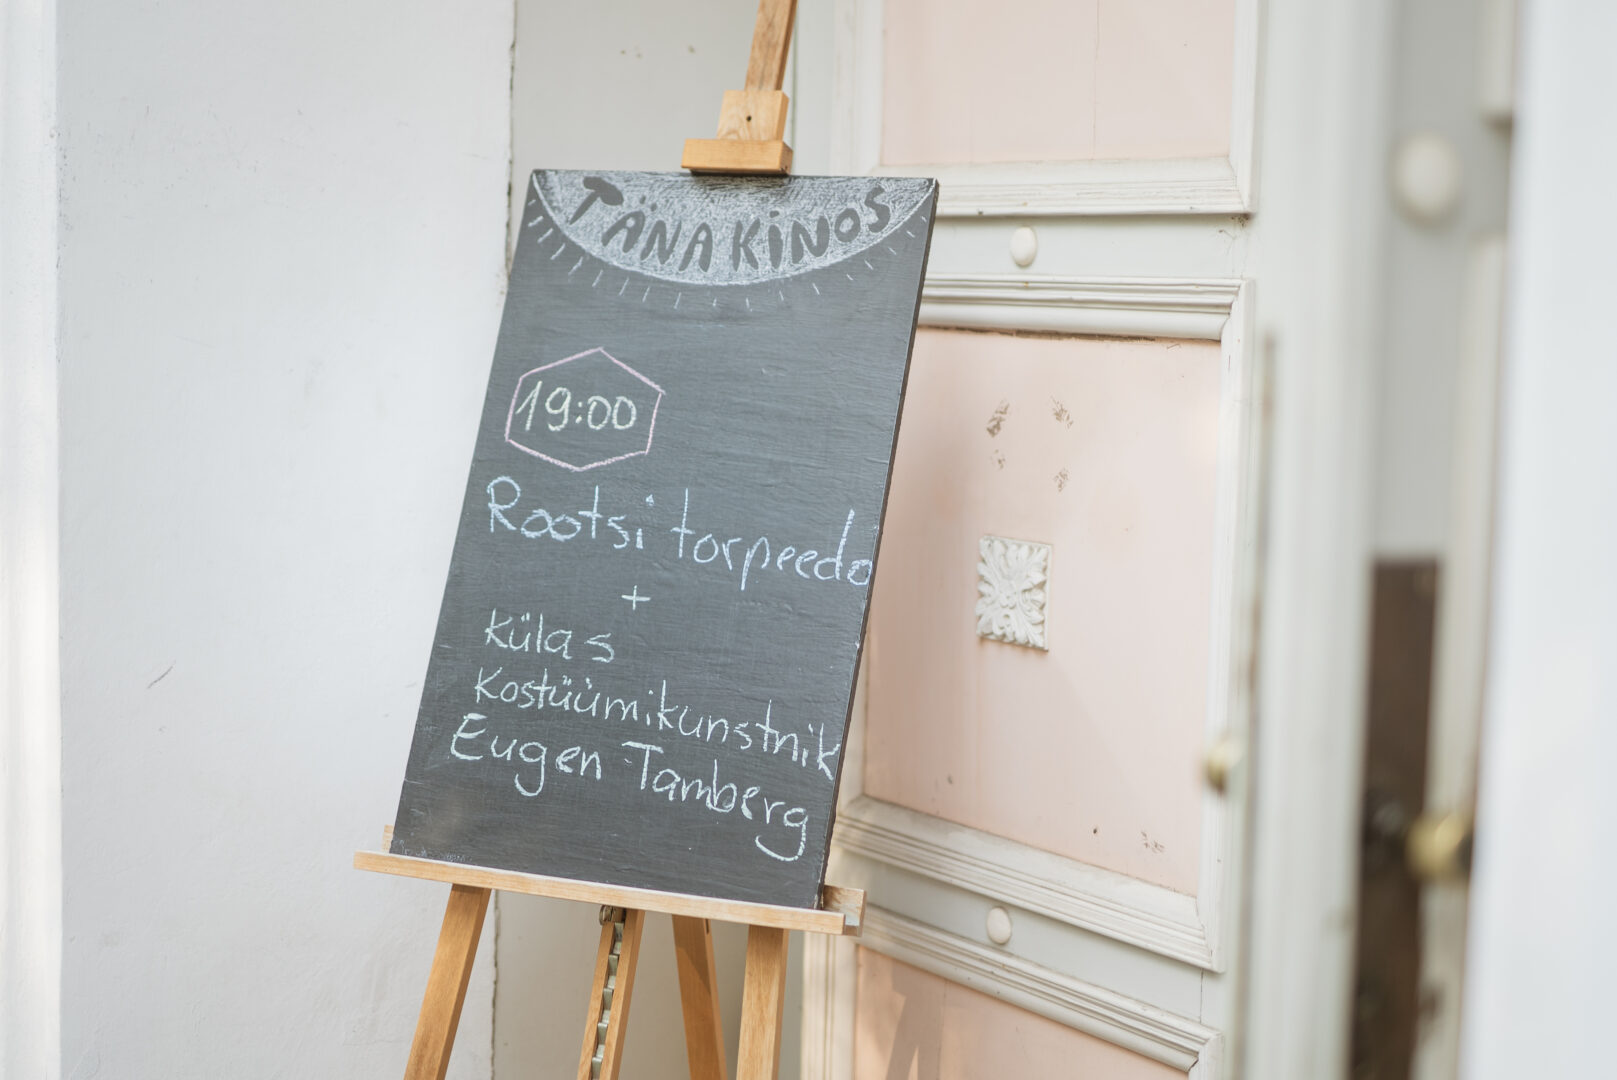 TÄNA KINOS
19:00
Rootsi torpeedo
+
Külas
Kostüümikunstnik
Eugen Tamberg